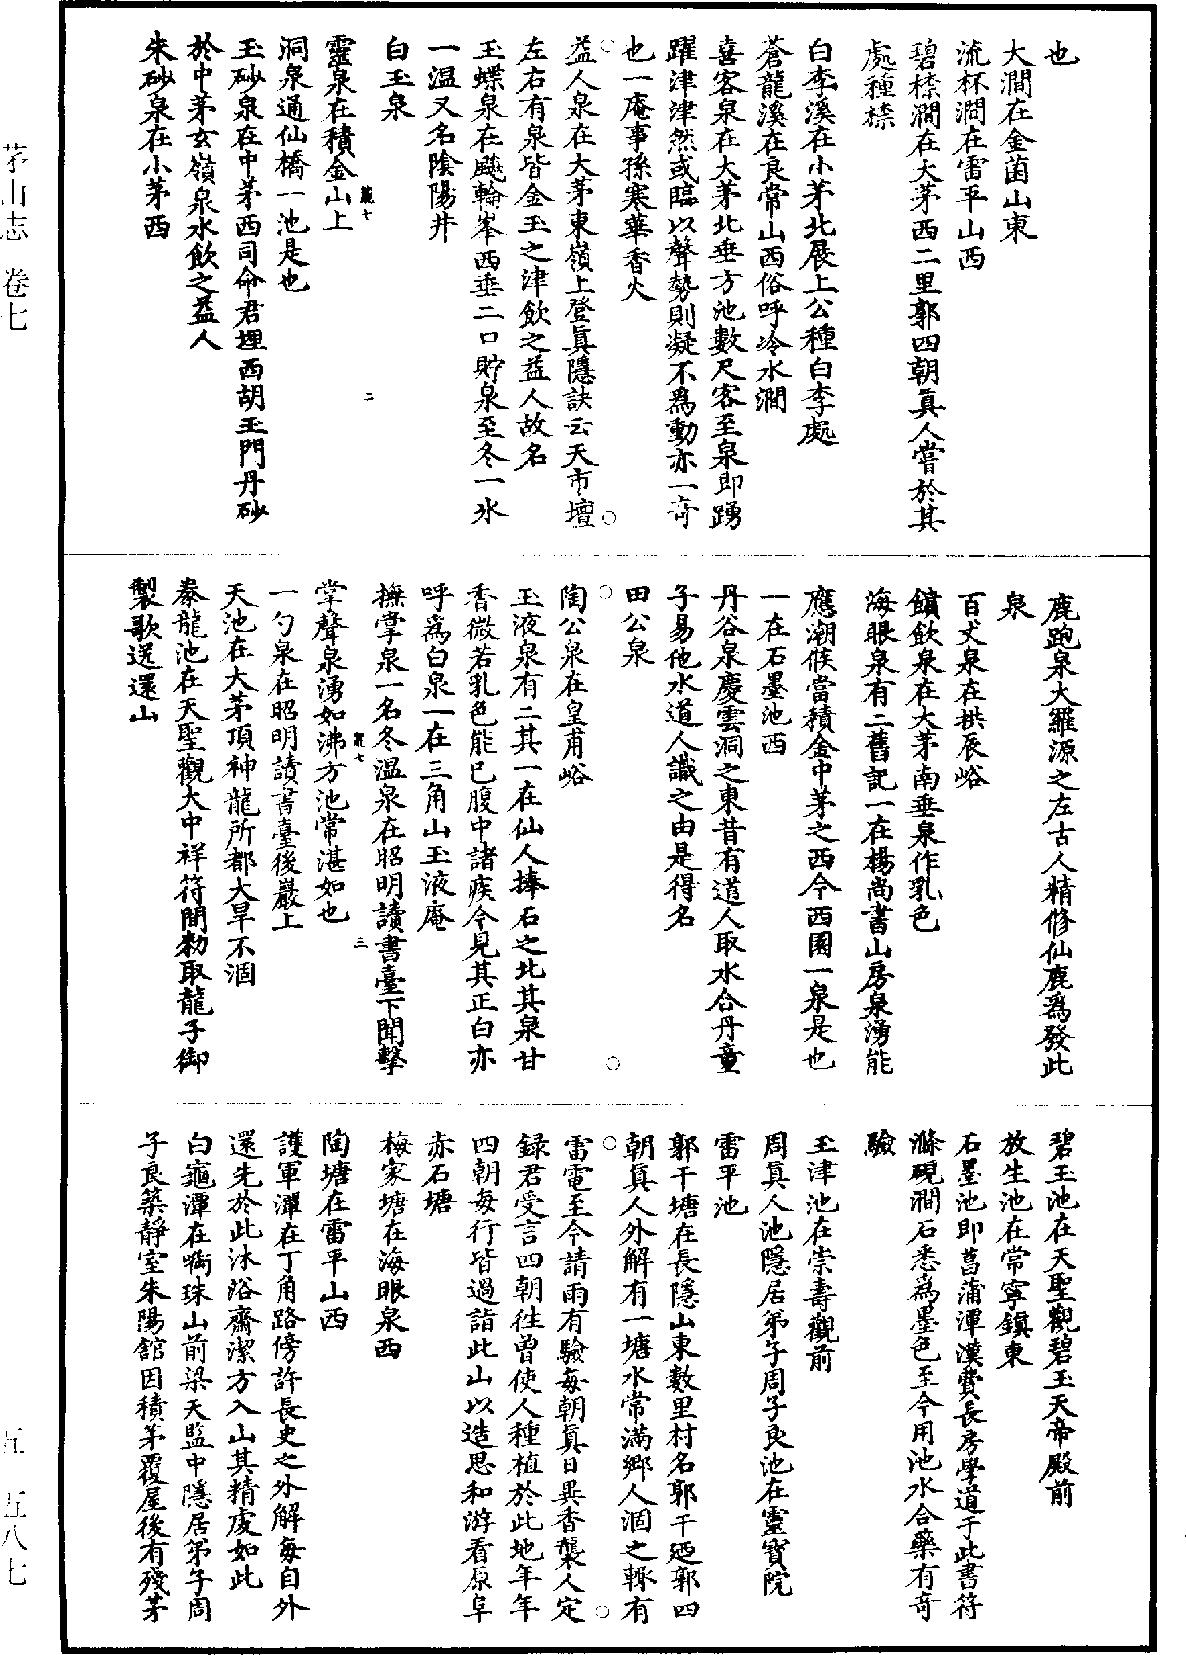 也
大澗在金菌山東
流杯澗在雷平山西
碧㮈澗在大茅西二里郭四朝眞人嘗於其
處種㮈
白李溪在小茅北展上公種白李處
蒼龍溪在良常山西俗呼冷水澗
喜客泉在大茅北垂方池數尺客至泉即踴
躍津津然或臨以聲勢則凝不爲動亦一奇
也一庵事孫寒華香火
益人泉在大茅東嶺上登眞隱訣云天市壇
左右有泉皆金玉之津飲之益人故名
玉蝶泉在飈輪峯西垂二口貯泉至冬一氷
一温又名陰陽井
白玉泉
靈泉在積金山上
洞泉通仙橋一池是也
玉砂泉在中茅西司命君埋西胡玉門丹砂
於中茅玄嶺泉水飲之益人
朱砂泉在小茅西
龍七
二
鹿跑泉大羅源之左古人精修仙鹿爲發此
泉
百丈泉在拱辰峪
饙飲泉在大茅南垂泉作乳色
海眼泉有二舊記一在楊尚書山房泉湧能
應潮候當積金中茅之西今西園一泉是也
一在石墨池西
丹谷泉慶雲洞之東昔有道人取水合丹童
子易他水道人識之由是得名
田公泉
陶公泉在皇甫峪
玉液泉有二其一在仙人捧石之北其泉甘
香微若乳色能已腹中諸疾今見其正白亦
呼爲白泉一在三角山玉液庵
撫掌泉一名冬温泉在昭明讀書臺下聞擊
掌聲泉湧如沸方池常湛如也
一勺泉在昭明讀書臺後巖上
天池在大茅頂神龍所都大旱不涸
豢龍池在天聖觀大中祥符間勑取龍子御
製歌送還山
龍七
三
碧玉池在天聖觀碧玉天帝殿前
放生池在常寧鎮東
石墨池即菖蒲潭漢費長房學道于此書符
滌硯澗石悉爲墨色至今用池水合藥有奇
驗
玉津池在崇壽觀前
周眞人池隱居弟子周子良池在靈寶院
雷平池
郭千塘在長隱山東數里村名郭千廼郭四
朝眞人外解有一塘水常滿鄉人涸之輒有
雷電至今請雨有驗每朝眞日異香襲人定
録君受言四朝徃曾使人種植於此地年年
四朝每行皆過詣此山以造思和游看原阜
赤石塘
梅家塘在海眼泉西
陶塘在雷平山西
護軍潭在丁角路傍許長史之外解每自外
還先於此沐浴齋潔方入山其精虔如此
白龜潭在㗸珠山前梁天監中隱居弟子周
子良築靜室朱陽館因積茅覆屋後有殘茅
茅山志 卷七
五 五八七